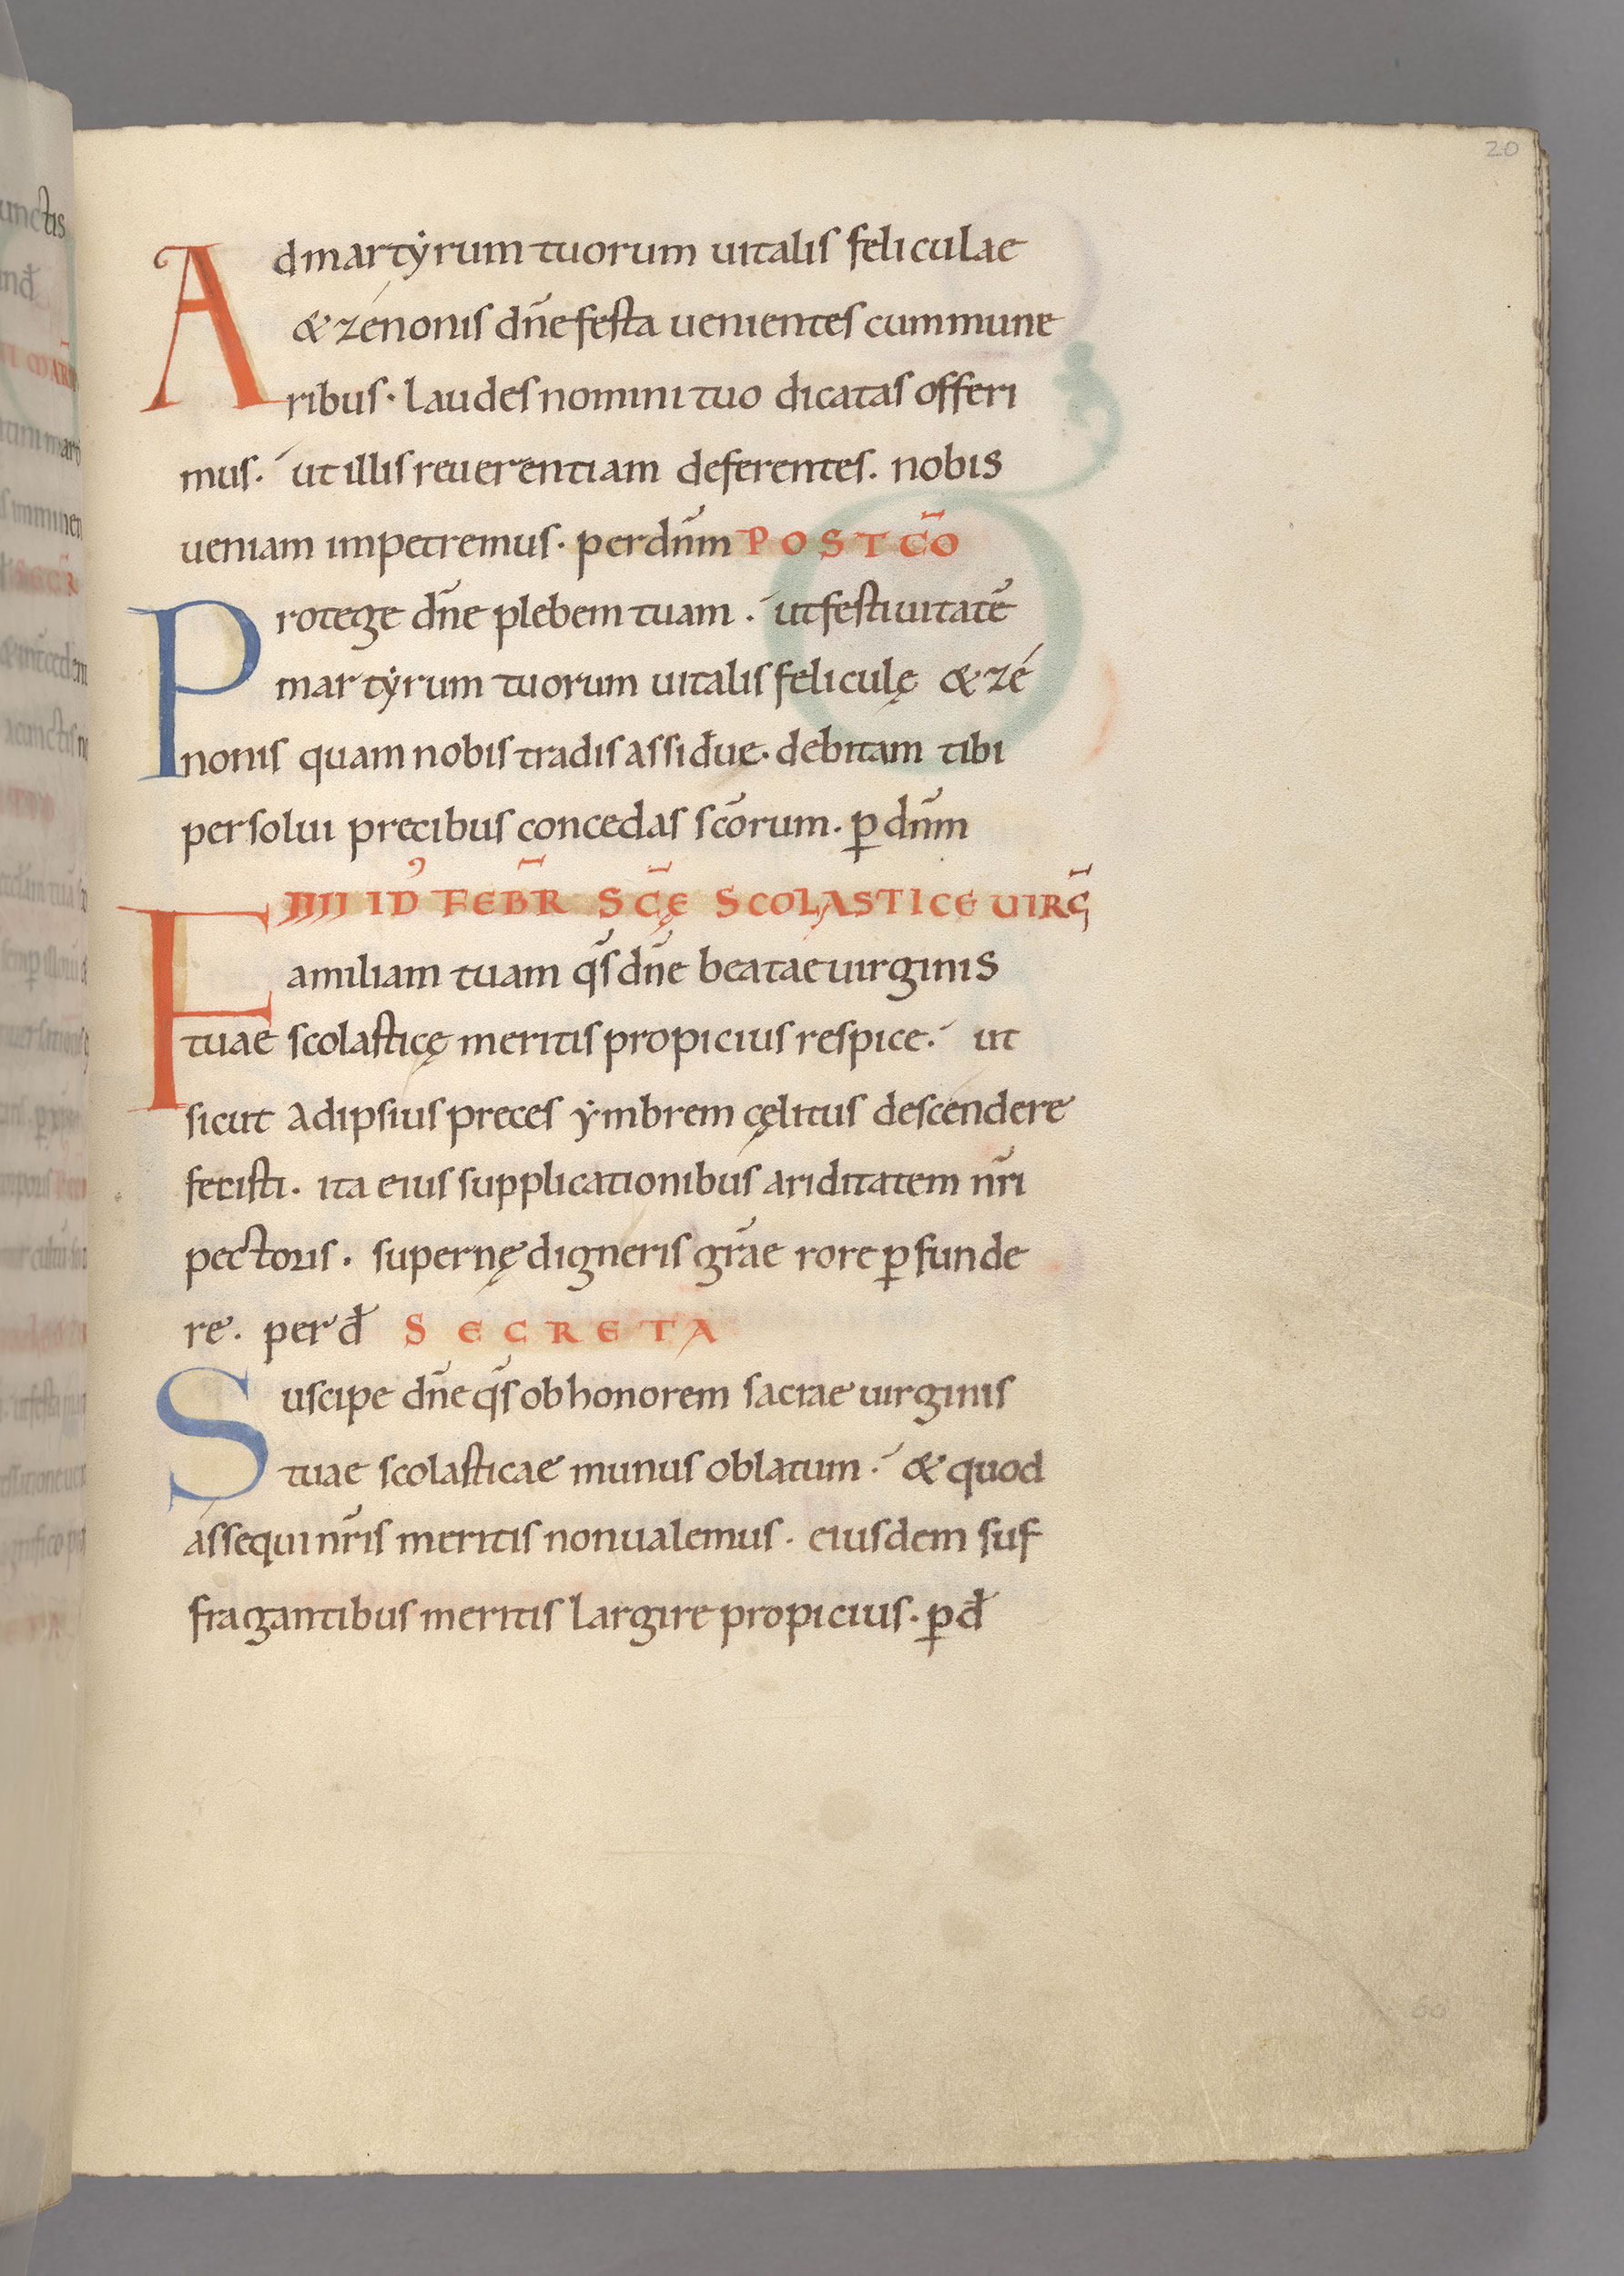 20
Ad martyrum tuorum uitalis feliculae
& zénonis dñe festa uenientes cum mune
ribus · laudes nomini tuo dicatas offeri
mus · ut illis reuerentiam deferentes. nobis
ueniam impetremus · per dnm̄ POSTCŌ
Protege dñe plebem tuam . ut festiuitatē
martyrum tuorum uitalis feliculę & zé
nonis quam nobis tradis assidue · debitam tibi
persolui precibus concedas scōrum · ꝑ dnm̄
IIII ID' FEBR̄ SC̄Ę SCOLASTICE UIRḠ
Familiam tuam qs̄ dñe beatae uirginis
tuae scolasticę meritis propicius respice · ut
sicut ad ipsius preces ẏmbrem cęlitus descendere
fecisti · ita eius supplicationibus ariditatem nr̄i
pectoris · supernę digneris gr̄ae rore ꝑfunde
re · per đ SECRETA
Suscipe dñe qs̄ ob honorem sacrae uirginis
tuae scolasticae munus oblatum · & quod
assequi nr̄is meritis non ualemus · eiusdem suf
fragantibus meritis largire propicius · ꝑ đ
60